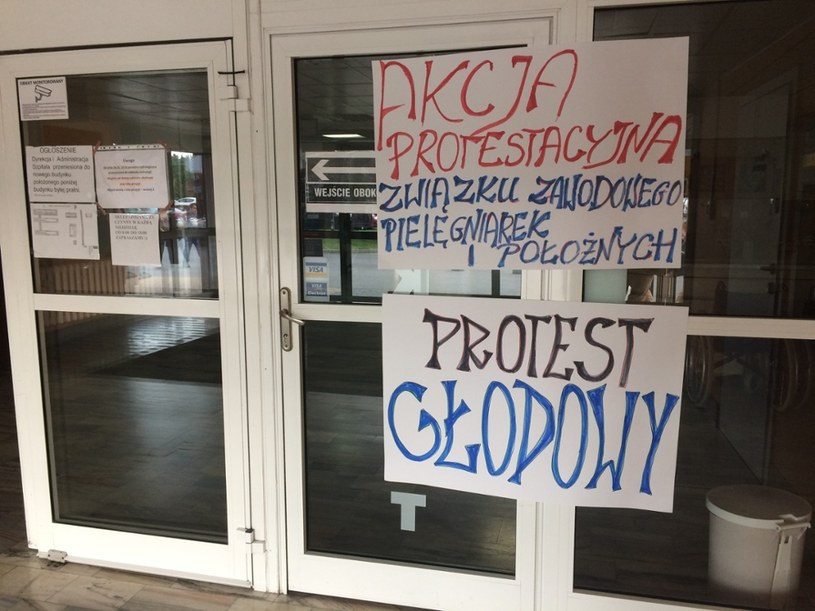 OBIEKT MONITOROWANY
OGŁOSZENIE
Dyrekcja i Administracja
Szpitala przeniesiona do
nowego budynku
położonego poniżej
budynku byłej pralni.
WEJŚCIE OBOK
VISA
VISA
AKCJA
PROTESTACYJNA
ZWIĄZKU ZAWODOWEGO
PIELĘGNIAREK
I POŁOŻNYCH
PROTEST
GŁODOWY
T